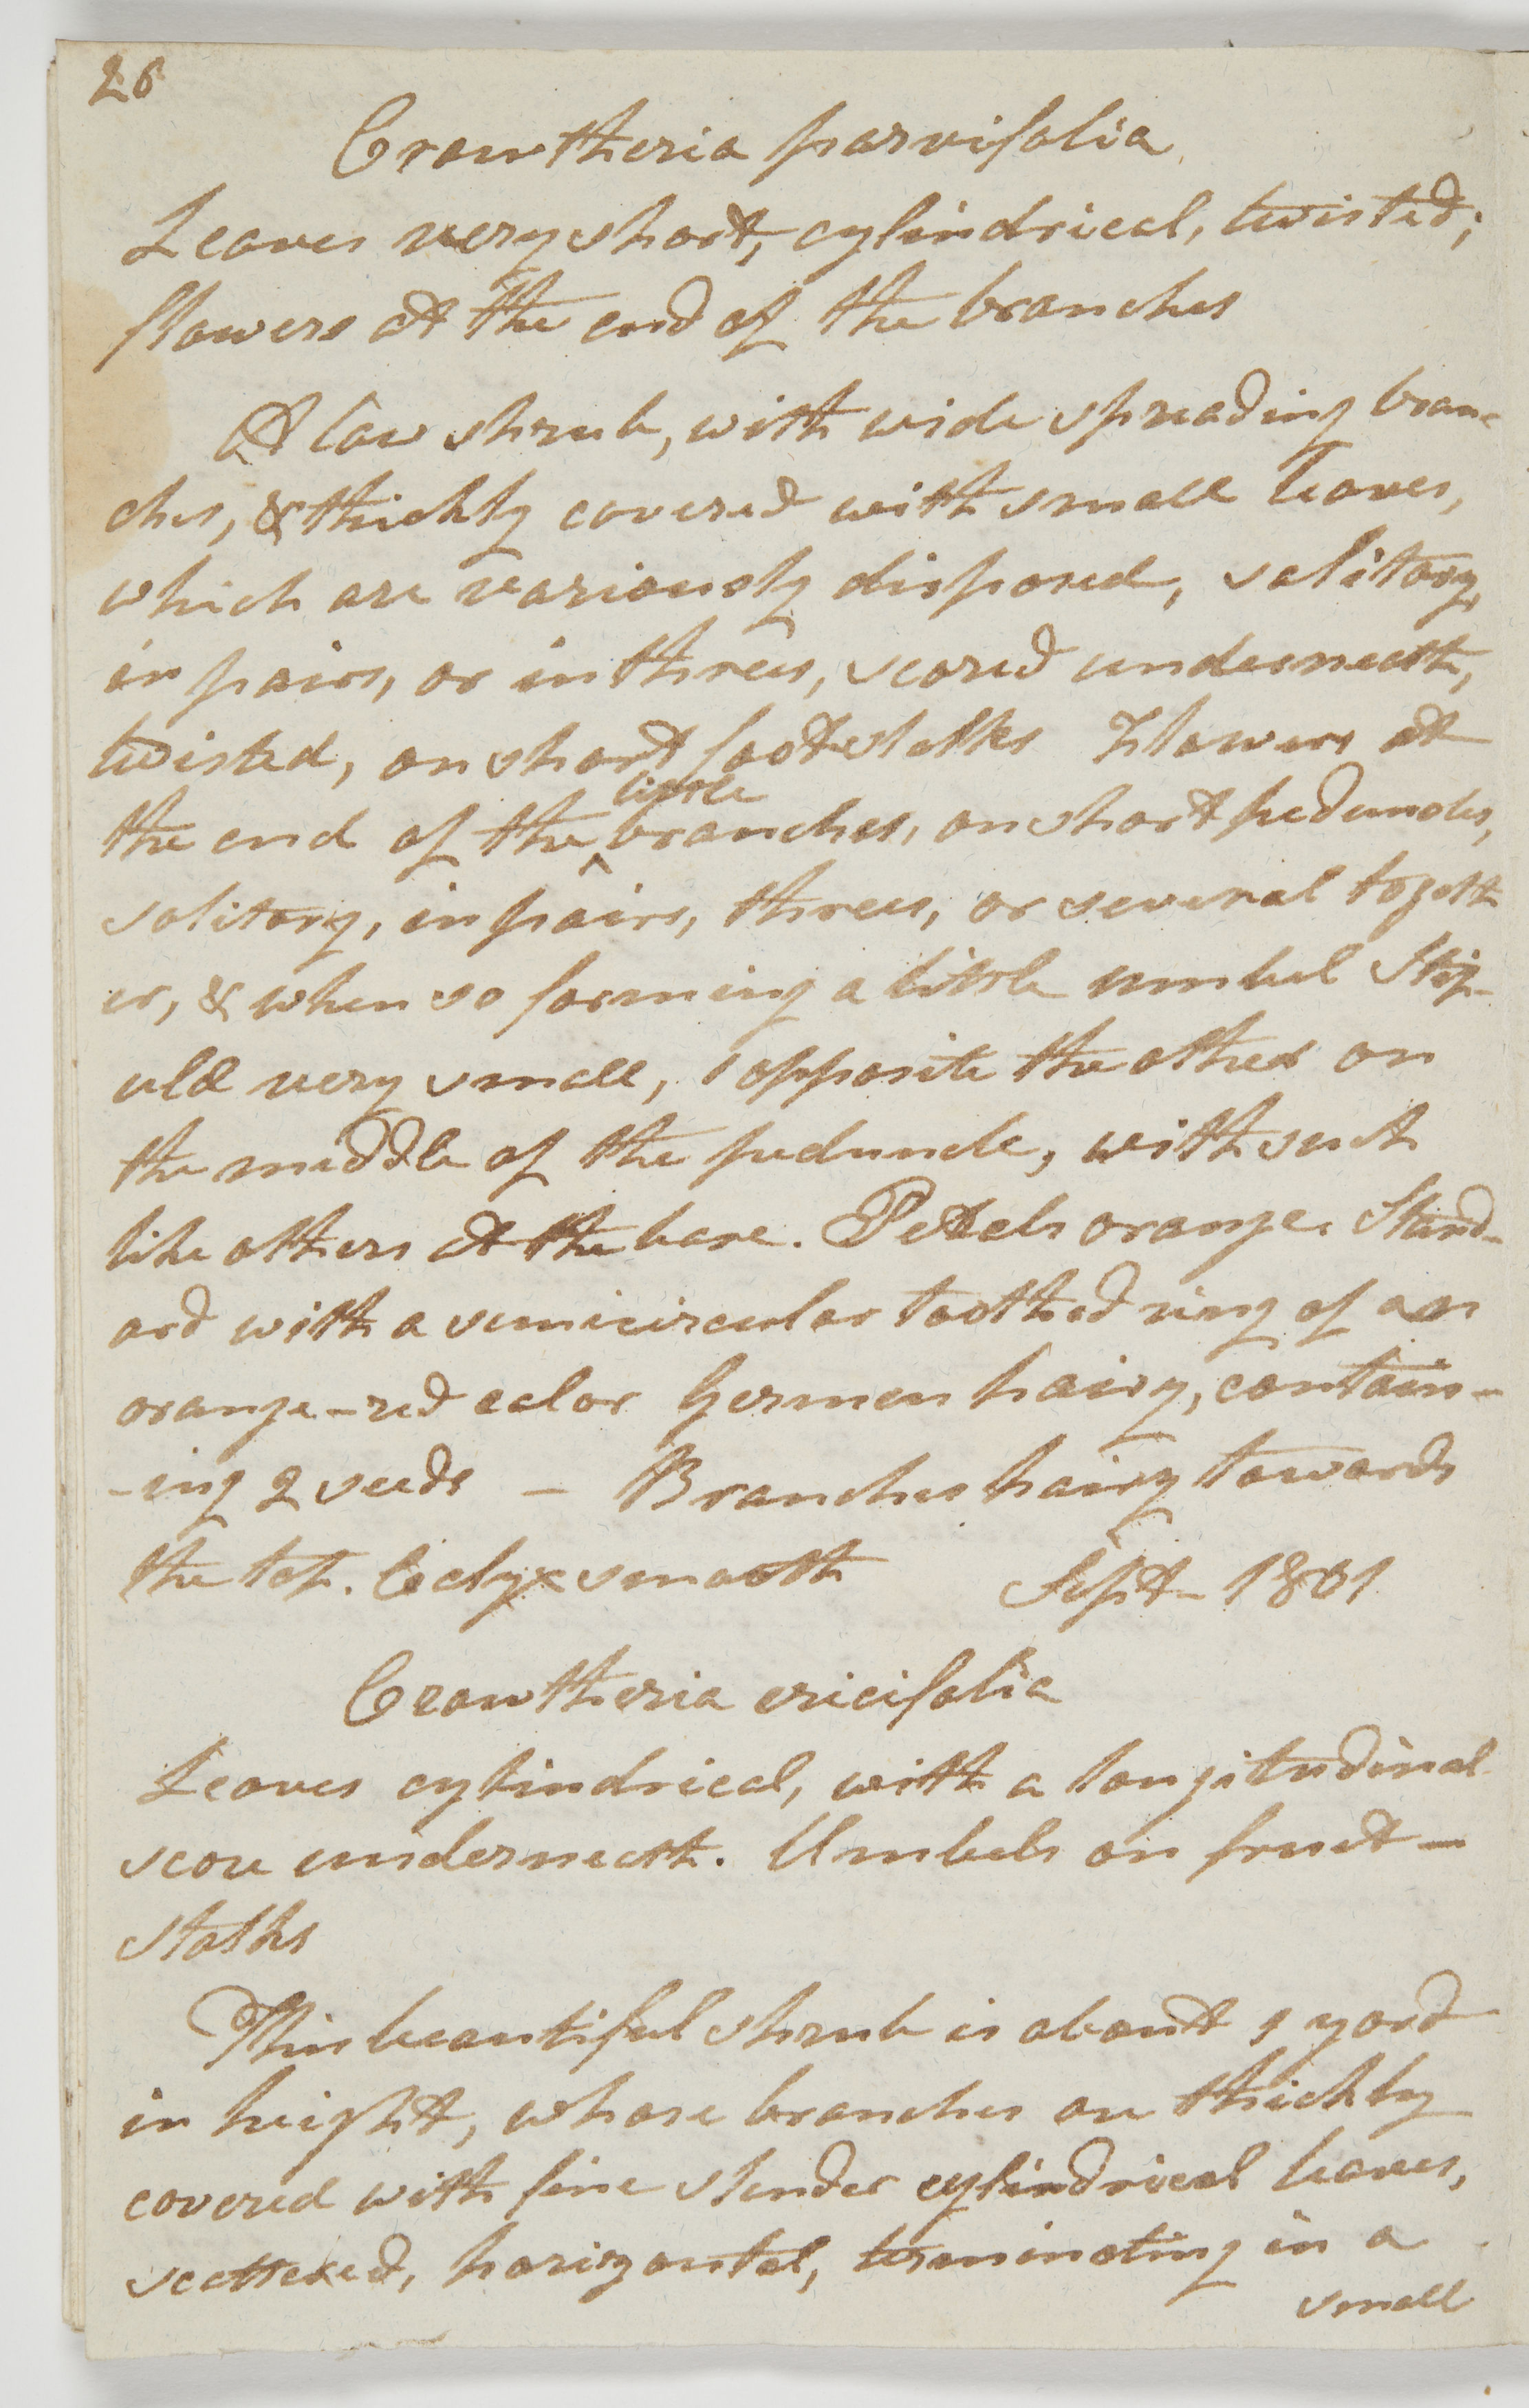 26
Crowtheria parvifolia
Leaves very short, cylindrical, twisted;
flowers at the end of the branches
A low shrub, with wide spreading bran-
ches, & thickly covered with small leaves,
which are variously disposed, solitary,
in pairs, or in threes, scored underneath,
twisted, on short footstalks Flowers at
little
the end of the ^ branches, on short peduncles,
solitary, in pairs, threes, or several togeth
er, & when so forming a little umbel Stip-
ulæ very small, 1 opposite the other on
the middle of the peduncle, with such
like others at the base. Petals orange. Stand-
ard with a semicircular toothed ring of an
orange-red color Germen hairy, contain-
-ing 2 seeds - Branches hairy towards
the top. Calyx smooth Sept- 1801
Crowtheria ericifolia
Leaves cylindrical, with a longitudinal
score underneath. Umbels on fruit-
stalks
This beautiful shrub is about 1 yard
in height, whose branches are thickly
covered with fine slender cylindrical leaves,
scattered, horizontal, terminating in a
small